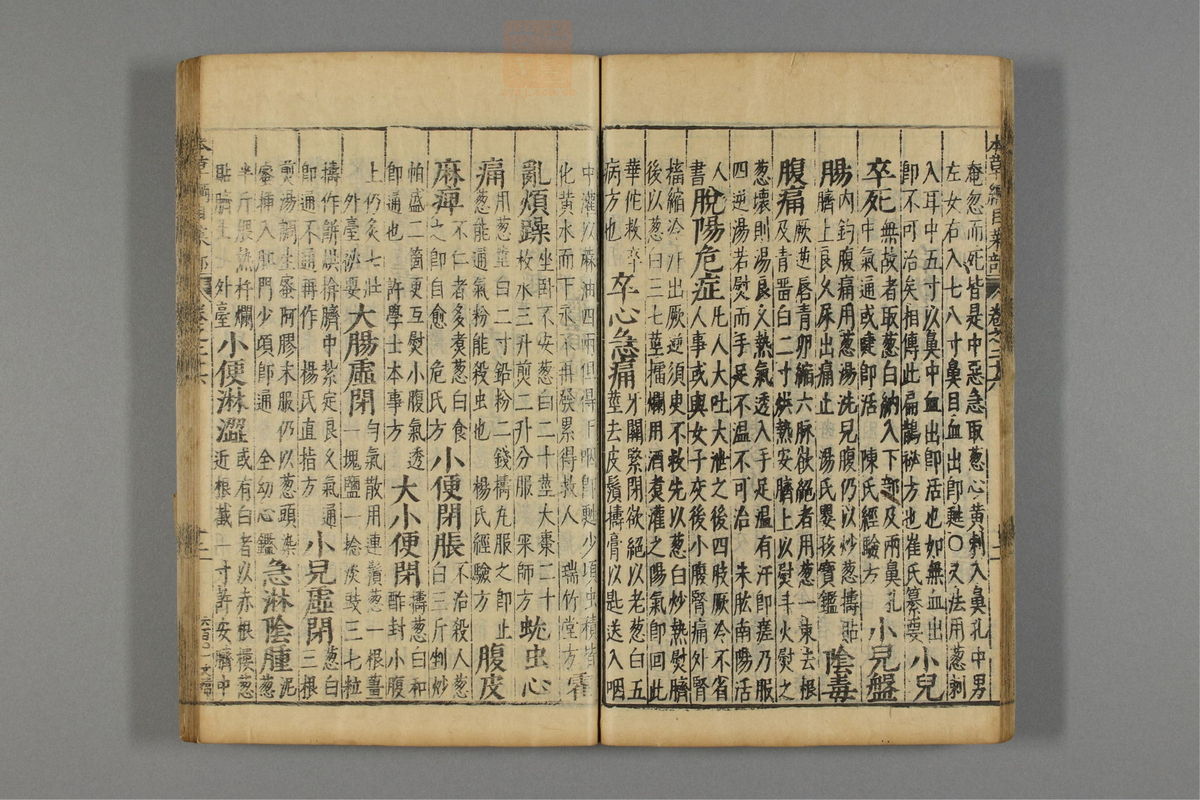 本草綱目菜部 卷之二十六 十二
魘忽而死皆是中惡急取葱心黃刺入鼻孔中男
左女右入七八寸鼻目血出即甦○又法用葱刺
入耳中五寸以鼻中血出即活也如無血出
即不可治矣相傳此扁鵲祕方也崔氏纂要
小兒
卒死
無故者取葱白納入下部及兩鼻孔
中氣通或嚏即活 陳氏經驗方
小兒盤
腸
內釣腹痛用葱湯洗兒腹仍以炒葱擣貼
臍上良久尿出痛止 湯氏嬰孩寶鑑
陰毒
腹痛
厥逆唇青卵縮六脉欲絕者用葱一束去根
及青畱白二寸烘熱安臍上以熨斗火熨之
葱壞則湯良久熱氣透入手足温有汗即瘥乃服
四逆湯若熨而手足不温不可治 朱肱南陽活
人
書
脫陽危症
凡人大吐大泄之後四肢厥冷不省
人事或與女子交後小腹腎痛外腎
搐縮冷汗出厥逆須臾不救先以葱白炒熱熨臍
後以葱白三七莖擂爛用酒煮灌之陽氣即回此
華佗救卒
病方也
卒心急痛
牙關緊閉欲絕以老葱白五
莖去皮鬚擣膏以匙送入咽
中灌以麻油四兩但得下咽即甦少頃虫積皆
化黃水而下永不再發累得救人 瑞竹堂方
霍
亂煩躁
坐臥不安葱白二十莖大棗二十
枚水三升煎二升分服 梅師方
蚘虫心
痛
用葱莖白二寸鉛粉二錢擣丸服之即止
葱能通氣粉能殺虫也 楊氏經驗方
腹皮
麻痺
不仁者多煮葱白食
之即自愈 危氏方
小便閉脹
不治殺人葱
白三斤剉炒
帕盛二箇更互熨小腹氣透
即通也 許學士本事方
大小便閉
擣葱白和
酢封小腹
上仍灸七壯
外臺祕要
大腸虛閉
勻氣散用連鬚葱一根薑
一塊鹽一捻淡豉三七粒
擣作餅烘掩臍中紮定良久氣通
即通不通再作 楊氏直指方
小兒虛閉
葱白
三根
煎湯調生蜜阿膠末服仍以葱頭染
蜜插入肛門少頃即通 全幼心鑑
急淋陰腫
泥葱
半斤煨熱杵爛
貼臍上 外臺
小便淋澀
或有白者以赤根樓葱
近根截一寸許安臍中
本草綱目菜部 卷之二十六 十二